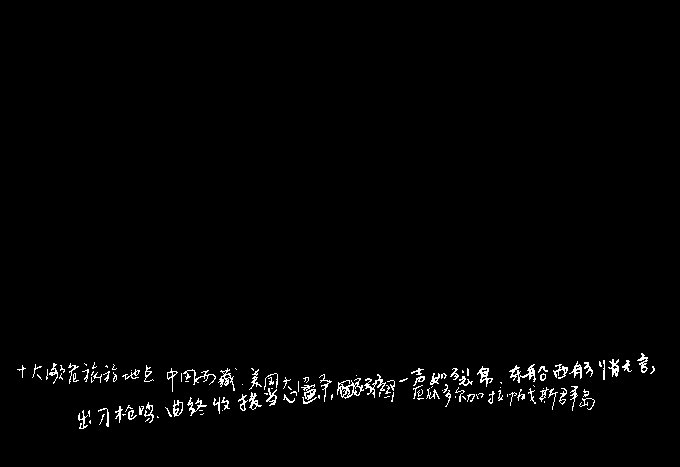 十大濒危旅游地点 中国西藏 美国大 一声如裂帛.东船西舫悄无言,
出刀枪鸣.曲终收拨当心画, 厄瓜多尔加拉帕戈斯群岛